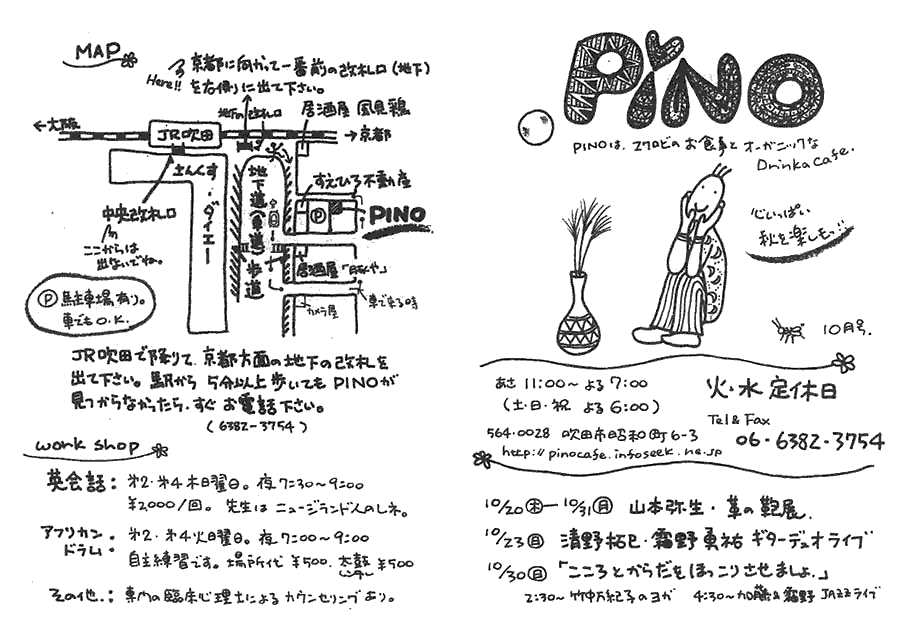 MAP
Here!!
京都に向かって一番前の改札口(地下)
を右側に出て下さい。
地下の改札口
居酒屋 風見鶏
←大阪
JR吹田
→京都
さんくす・ダイエー
中央改札口
ここからは
出ないでね。
地下道(車道)
歩道
すえひろ不動産
P
PINO
居酒屋
カメラ屋
車で来る時
P 駐車場有り。
車でもO.K.
JR吹田で降りて、京都方面の地下の改札を
出て下さい。駅から5分以上歩いてもPINOが
見つからなかったら、すぐお電話下さい。
(6382-3754)
work shop
英会話: 第2・第4木曜日。夜7:30~9:00
¥2000/回。先生はニュージランド人のしネ。
アフリカン・ドラム: 第2・第4火曜日。夜7:00~9:00
自主練習です。場所代¥500. 太鼓レンタル¥500
その他.: 専門の臨床心理士によるカウンセリングあり。
PiNO
PINOは、マクロビのお食事とオーガニックな
Drinkなcafe.
心いっぱい
秋を楽しもっ
10月号.
あさ 11:00~よる7:00
(土・日・祝 よる6:00)
火・水 定休日
564-0028 吹田市昭和町6-3
http://pinocafe.infoseek.ne.jp
Tel & Fax
06・6382・3754
10/20(木)―10/31(月) 山本弥生・革の鞄展.
10/23(日) 清野拓巳・靍野勇祐 ギターデュオライブ
10/30(日)「こころとからだをほっこりさせましょ.」
2:30~竹中万紀子のヨガ 4:30~加藤&靍野 JAZZライブ